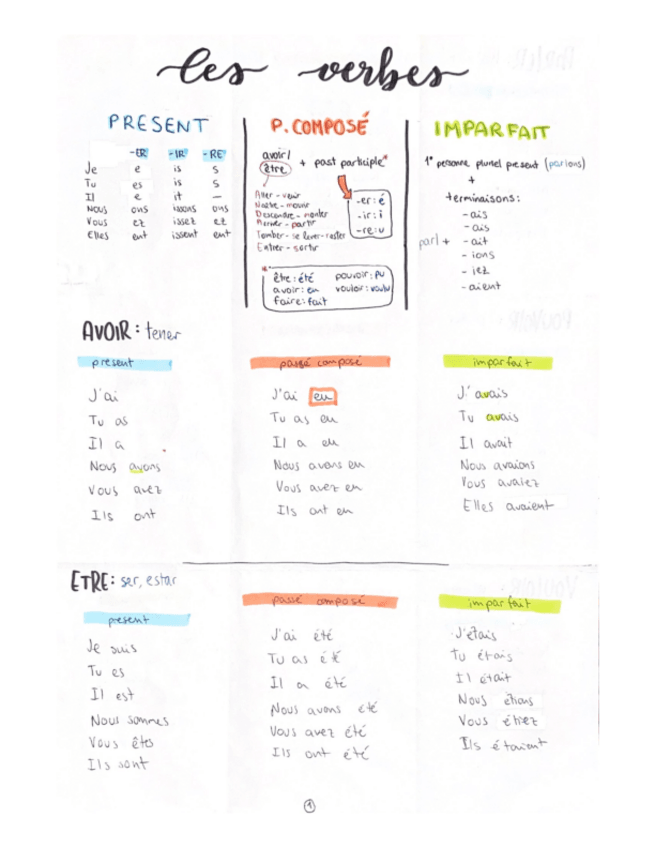 les verbes
PRESENT
-ER -IR -RE
Je e is s
Tu es is s
Il e it —
Nous ons issons ons
Vous ez issez ez
Elles ent issent ent
P. COMPOSÉ
avoir/
être + past participle*
Aller - venir
Naître - mourir
Descendre - monter
Arriver - partir
Tomber - se lever - rester
Entrer - sortir
-er: é
-ir: i
-re: u
*
être: été pouvoir: pu
avoir: eu vouloir: voulu
faire: fait
IMPARFAIT
1ª personne pluriel present (parlons)
+
terminaisons:
-ais
-ais
parl + -ait
-ions
-iez
-aient
AVOIR: tener
present
J'ai
Tu as
Il a
Nous avons
Vous avez
Ils ont
passé composé
J'ai eu
Tu as eu
Il a eu
Nous avons eu
Vous avez eu
Ils ont eu
imparfait
J'avais
Tu avais
Il avait
Nous avaions
Vous avaiez
Elles avaient
ETRE: ser, estar
present
Je suis
Tu es
Il est
Nous sommes
Vous êtes
Ils sont
passé composé
J'ai été
Tu as été
Il a été
Nous avons été
Vous avez été
Ils ont été
imparfait
J'étais
Tu étais
Il était
Nous étions
Vous étiez
Ils étaient
1